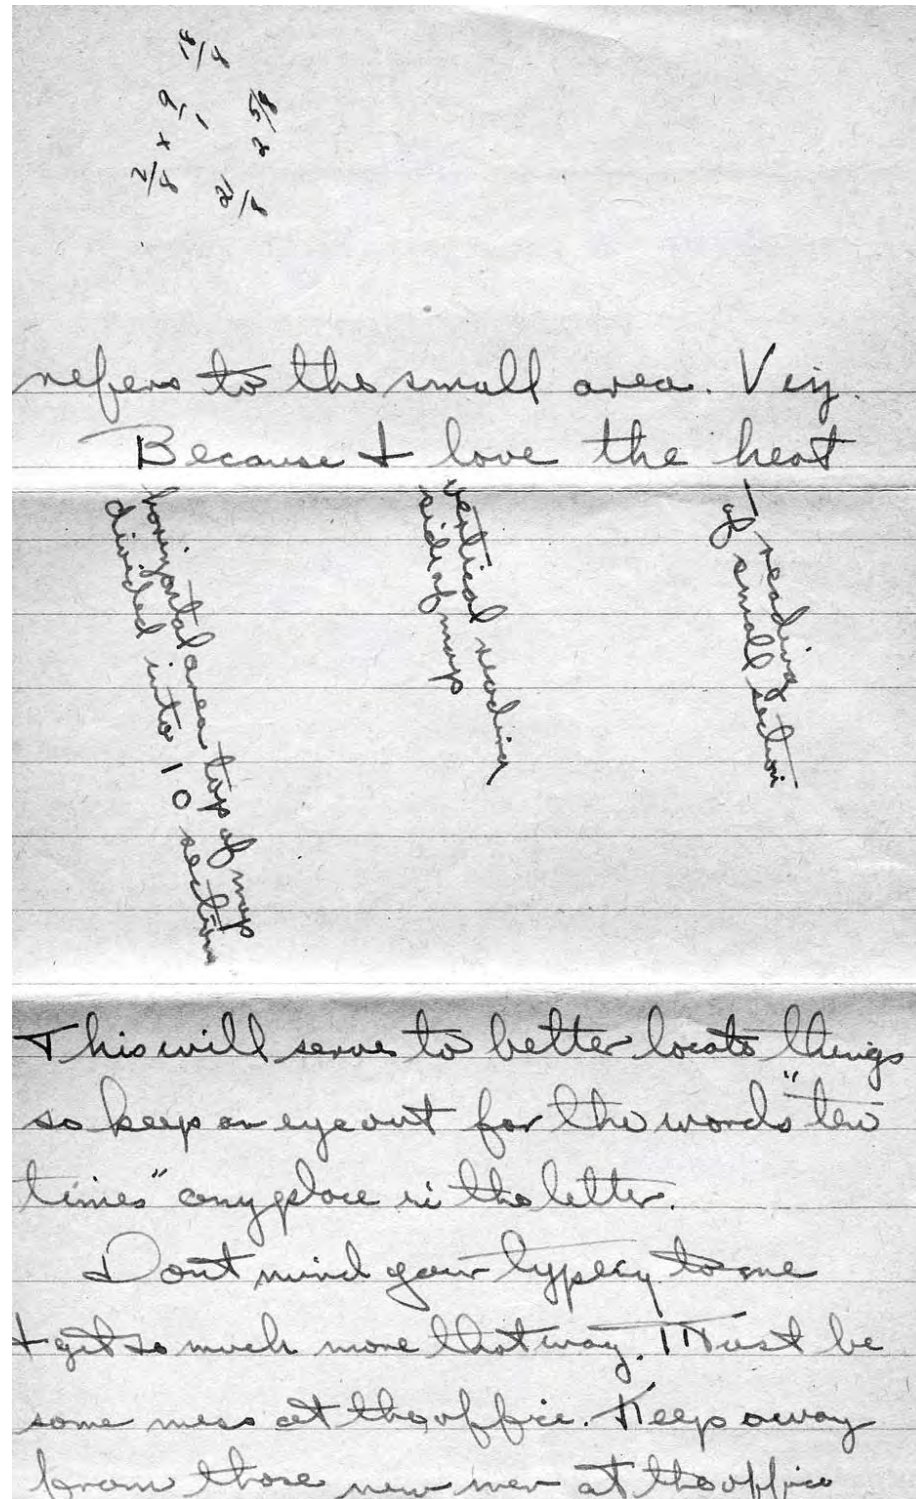 18/8
2/8 x 9/1
2 5/8
21/8
refers to the small area. Viz.
Because I love the heat
horizontal area top of map
divided into 10 section
vertical reading
side of map
reading
of small section
This will serve to better locate things
so keep an eye out for the words "ten
times" anyplace in the letter.
Dont mind your typeing to me
I get so much more that way. Must be
some mess at the office. Keep away
from those new men at the office